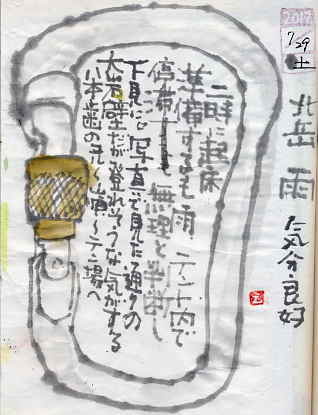 2017
7/29
土
北岳 雨 気分良好
二時に起床
準備するも雨 テント内で
するも無理と判断し
下見に。写真で見た通りの
大岩壁だが登れそうな気がする
八本歯のコル〜山頂〜テン場へ